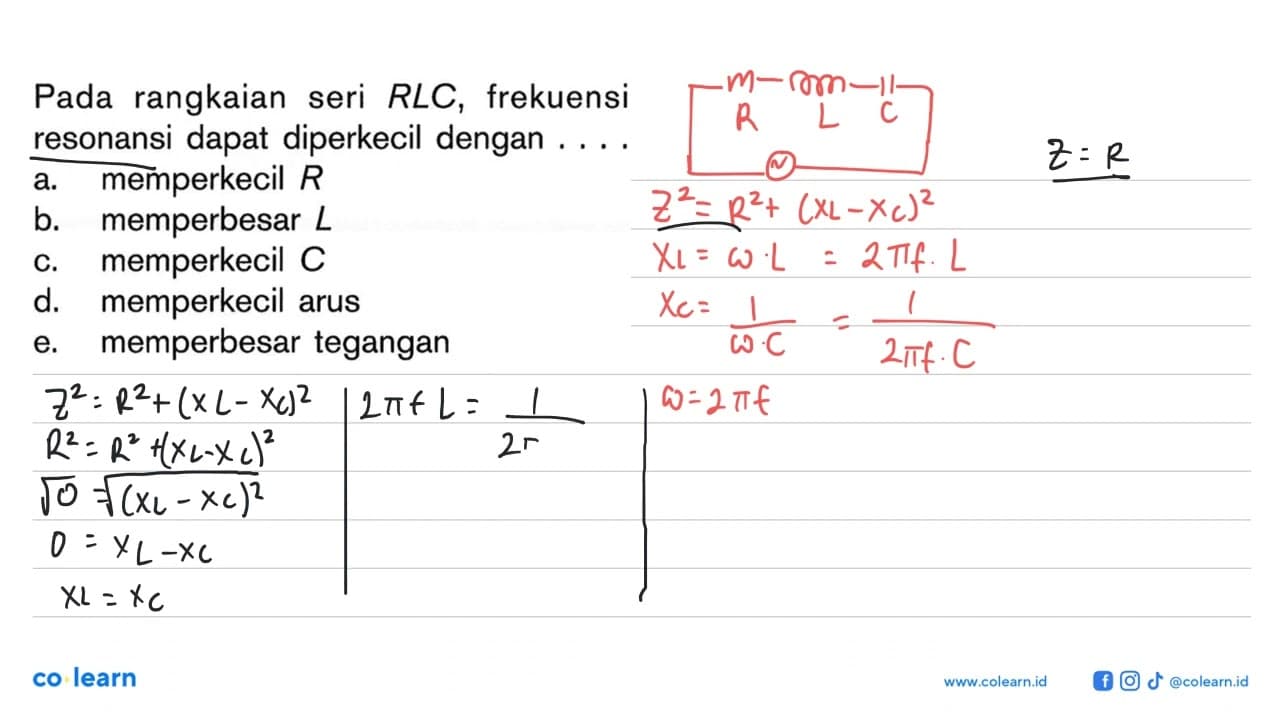 Pada rangkaian seri RLC, frekuensi
resonansi dapat diperkecil dengan . . . .
a. memperkecil R
b. memperbesar L
c. memperkecil C
d. memperkecil arus
e. memperbesar tegangan
R L C
N
Z = R
Z² = R² + (XL - XC)²
XL = ω · L = 2πf · L
XC = 1/(ω · C) = 1/(2πf · C)
ω = 2πf
Z² = R² + (XL - XC)²
R² = R² + (XL - XC)²
√0 = √(XL - XC)²
0 = XL - XC
XL = XC
2πf L = 1/2
co learn
www.colearn.id
@colearn.id